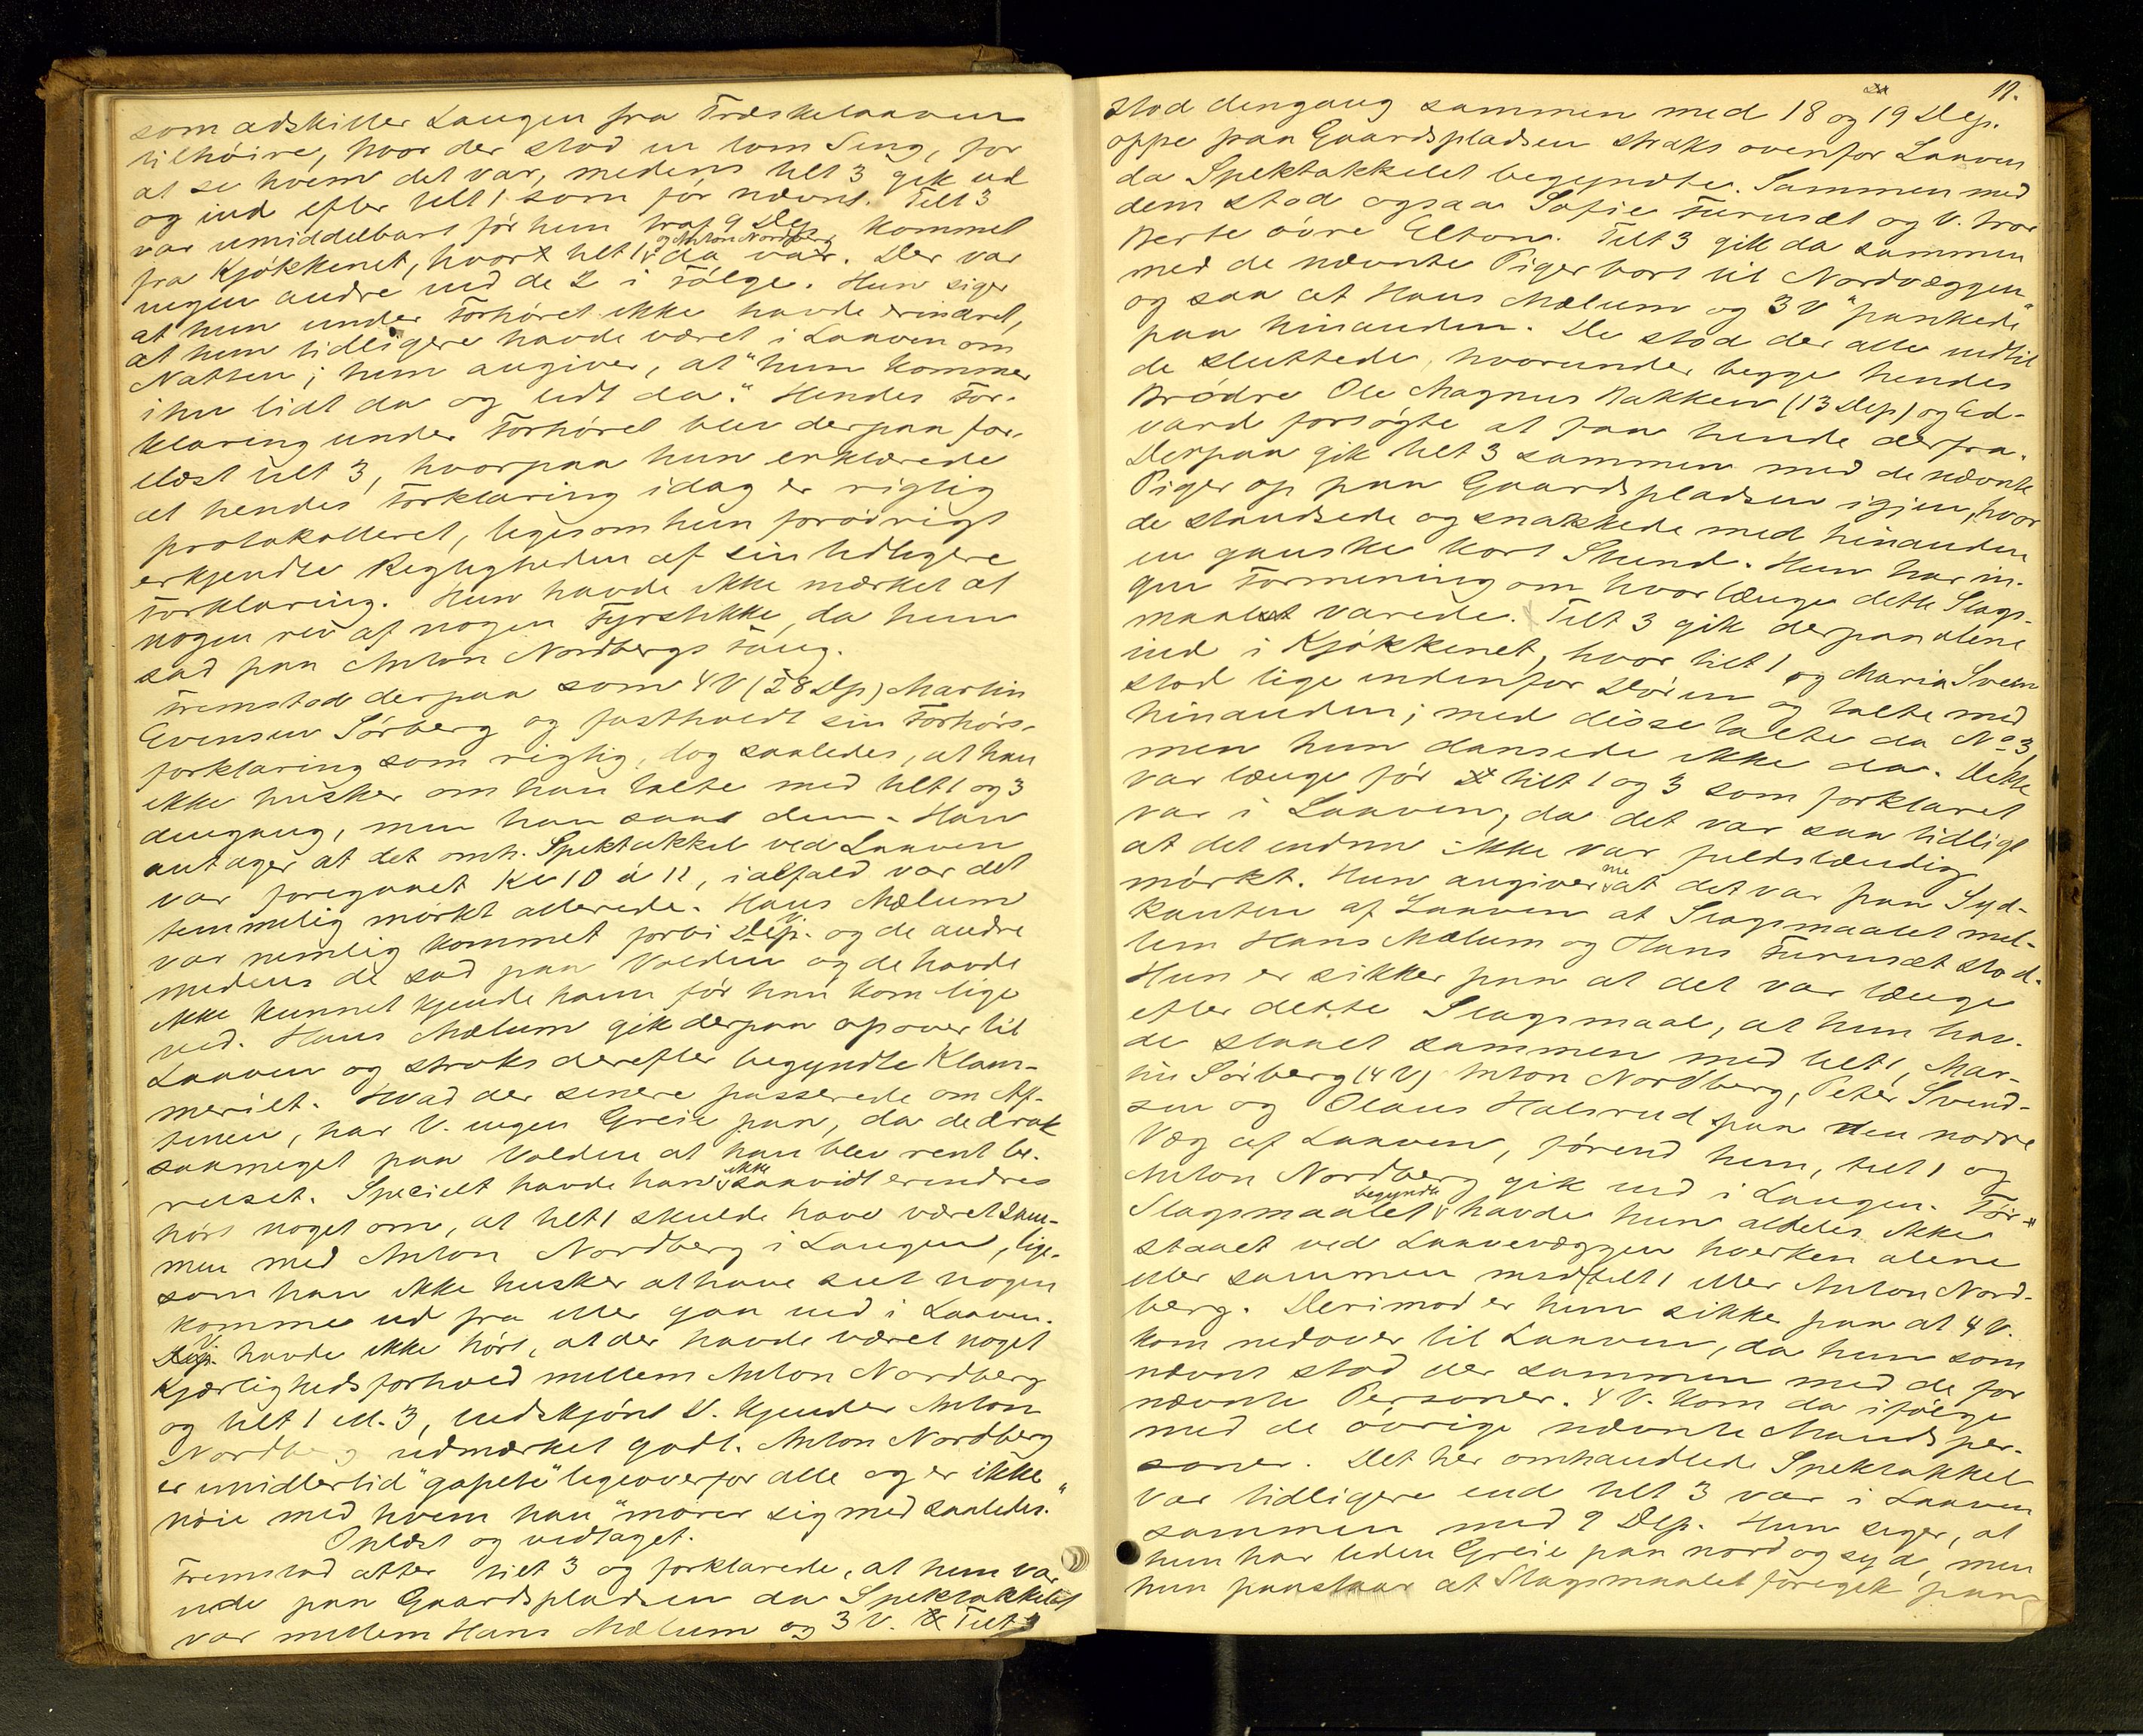 som adskiller Langen fra Træskelaaven
tilhøire, hvor der stod en tom Seng, for
at se hvem det var, medens tilt 3 gik ud
og ind efter tilt 1 som før nævnt. Tilt 3
var umiddelbart før hun traf 9 Dep. kommet
fra Kjøkkenet, hvor tilt 1 og Anton Nordberg da var. Der var
ingen andre end de 2 i Følge. Hun siger
at hun under Forhøret ikke havde erindret,
at hun tidligere havde været i Laaven om
Natten; hun angiver, at "hun kommer
ihu lidt da og lidt da." Hendes For-
klaring under Forhøret blev derpaa for-
elæst tilt 3, hvorpaa hun erklærede
at hendes Forklaring idag er rigtig
protokolleret, ligesom hun forøvrigt
erkjendte Rigtigheden af sin tidligere
Forklaring. Hun havde ikke mærket at
nogen rev af nogen Fyrstikke, da hun
sad paa Anton Nordbergs Fang.
Fremstod derpaa som 4 V (28 Dp) Martin
Evensen Sørberg og fastholdt sin Forhørs-
forklaring som rigtig, dog saaledes, at han
ikke husker om han talte med tilt 1 og 3
dengang, men han saa dem. Han
antager at det omh. Spektakkel ved Laaven
var foregaaet Kl 10 à 11, ialfald var det
temmelig mørkt allerede. Hans Mælum
var nemlig kommet forbi V. og de andre
medens de sad paa Volden og de havde
ikke kunnet kjende ham før han kom lige
ved. Hans Mælum gik derpaa opover til
Laaven og straks derefter begyndte Klam-
meriet. Hvad der senere passerede om Af-
tenen, har V. ingen Greie paa, da de drak
saameget paa Volden at han blev rent be-
ruset. Specielt havde han ikke saavidt erindres
hørt noget om, at tilt 1 skulde have været sam-
men med Anton Nordberg i Langen, lige-
som han ikke husker at have seet nogen
komme ud fra eller gaa ind i Laaven.
V. havde ikke hørt, at der havde været noget
Kjærlighedsforhold mellem Anton Nordberg
og tilt 1 ell. 3, endskjønt V. kjender Anton
Nordberg udmærket godt. Anton Nordberg
er imidlertid "gapete" ligeoverfor alle og er ikke
nøie med hvem han "morer sig med saaledes."
Oplæst og vedtaget.
Fremstod atter tilt 3 og forklarede, at hun var
ude paa Gaardspladsen da Spektakkelet
var mellem Hans Mælum og 3 V. Tilt 3
11.
stod dengang sammen med 18 og 19 Dep.
oppe paa Gaardspladsen straks ovenfor Laaven
da Spektakkelet begyndte. Sammen med
dem stod ogsaa Sofie Furuset og V. tror
Berte øvre Elton. Tilt 3 gik da sammen
med de nævnte Piger bort til Nordvæggen
og saa at Hans Mælum og 3 V "pankede"
paa hinanden. De stod der alle indtil
de sluttede, hvorunder begge hendes
Brødre Ole Magnus Bakken (13 Dep) og Ed-
vard forsøgte at faa hende derfra.
Derpaa gik tilt 3 sammen med de nævnte
Piger op paa Gaardspladsen igjen, hvor
de standsede og snakkede med hinanden
en ganske kort Stund. Hun har in-
gen Formening om hvorlænge dette Slags-
maal varede. Tilt 3 gik derpaa alene
ind i Kjøkkenet, hvor tilt 1 og Maria Sveen
stod lige indenfor Døren og talte med
hinanden; med disse talte da No 3,
men hun dansede ikke da. Dette
var længe før tilt 1 og 3 som forklaret
var i Laaven, da det var saa tidligt
at det endnu ikke var fuldstændig
mørkt. Hun angiver nu at det var paa Syd-
kanten af Laaven at Slagsmaalet mel-
lem Hans Mælum og Hans Furuset stod.
Hun er sikker paa at det var længe
efter dette Slagsmaal, at hun hav-
de staaet sammen med tilt 1, Mar-
tin Sørberg (4 V) Anton Nordberg, Peter Svend-
sen og Olaus Halsrud paa den nodre
Væg af Laaven, førend hun, tilt 1 og
Anton Nordberg gik ind i Langen. Før
Slagsmaalet begyndte havde hun aldeles ikke
staaet ved Laavevæggen hverken alene
eller sammen med tilt 1 eller Anton Nord-
berg. Derimod er hun sikker paa at 4 V.
kom nedover til Laaven, da hun som
nævnt stod der sammen med de før
nævnte Personer. 4 V. kom da ifølge
med de øvrige nævnte Mandsper-
soner. Det her omhandlede Spektakkel
var tidligere end tilt 3 var i Laaven
sammen med 9 Dep. Hun siger, at
hun har liden Greie paa nord og syd, men
hun paastaar at Slagsmaalet foregik paa